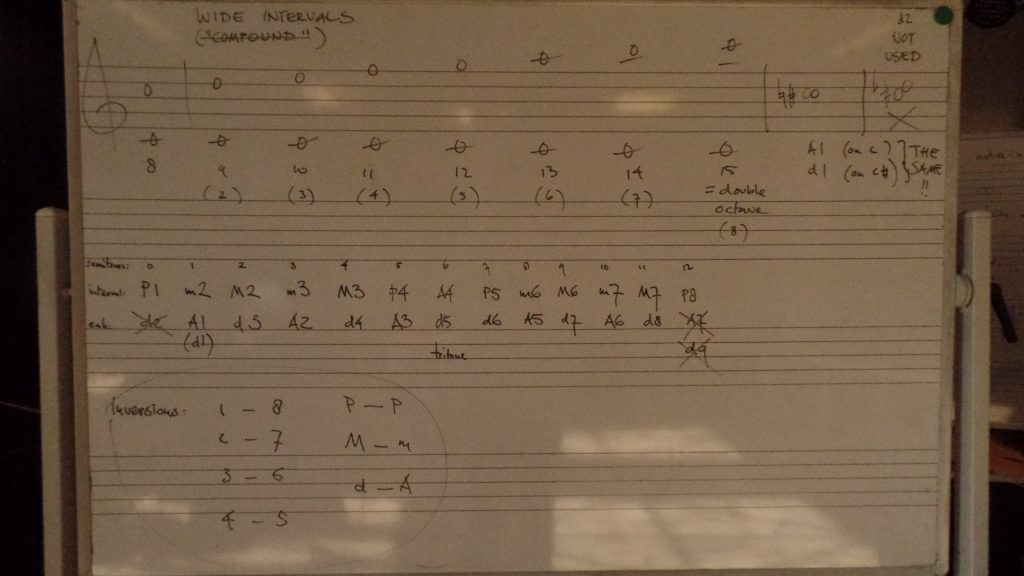 WIDE INTERVALS
("COMPOUND")
d2
NOT
USED
8 9 10 11 12 13 14 15
(2) (3) (4) (5) (6) (7)
= double
octave
(8)
A1 (on C)
d1 (on C#)
THE
SAME
!!
semitones: 0 1 2 3 4 5 6 7 8 9 10 11 12
interval: P1 m2 M2 m3 M3 P4 A4 P5 m6 M6 m7 M7 P8
enh. d2 A1 d3 A2 d4 A3 d5 d6 A5 d7 A6 d8 A7
(d1) tritone d9
Inversions: 1 – 8 P – P
2 – 7 M – m
3 – 6 d – A
4 – 5